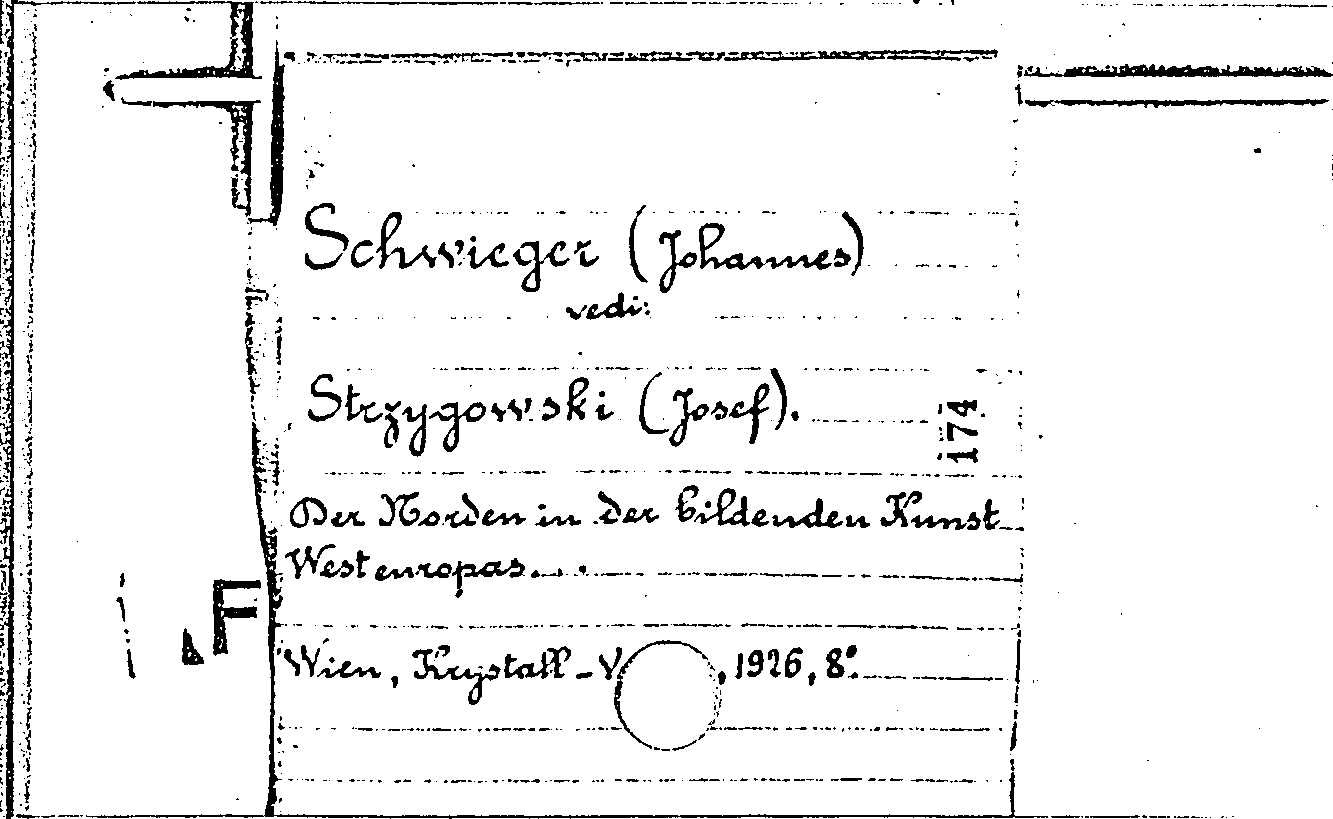 Schwieger (Johannes)
vedi:
Strzygowski (Josef).
174
Der Norden in der bildenden Kunst
Westeuropas...
Wien, Krystall-V , 1926, 8°.
F